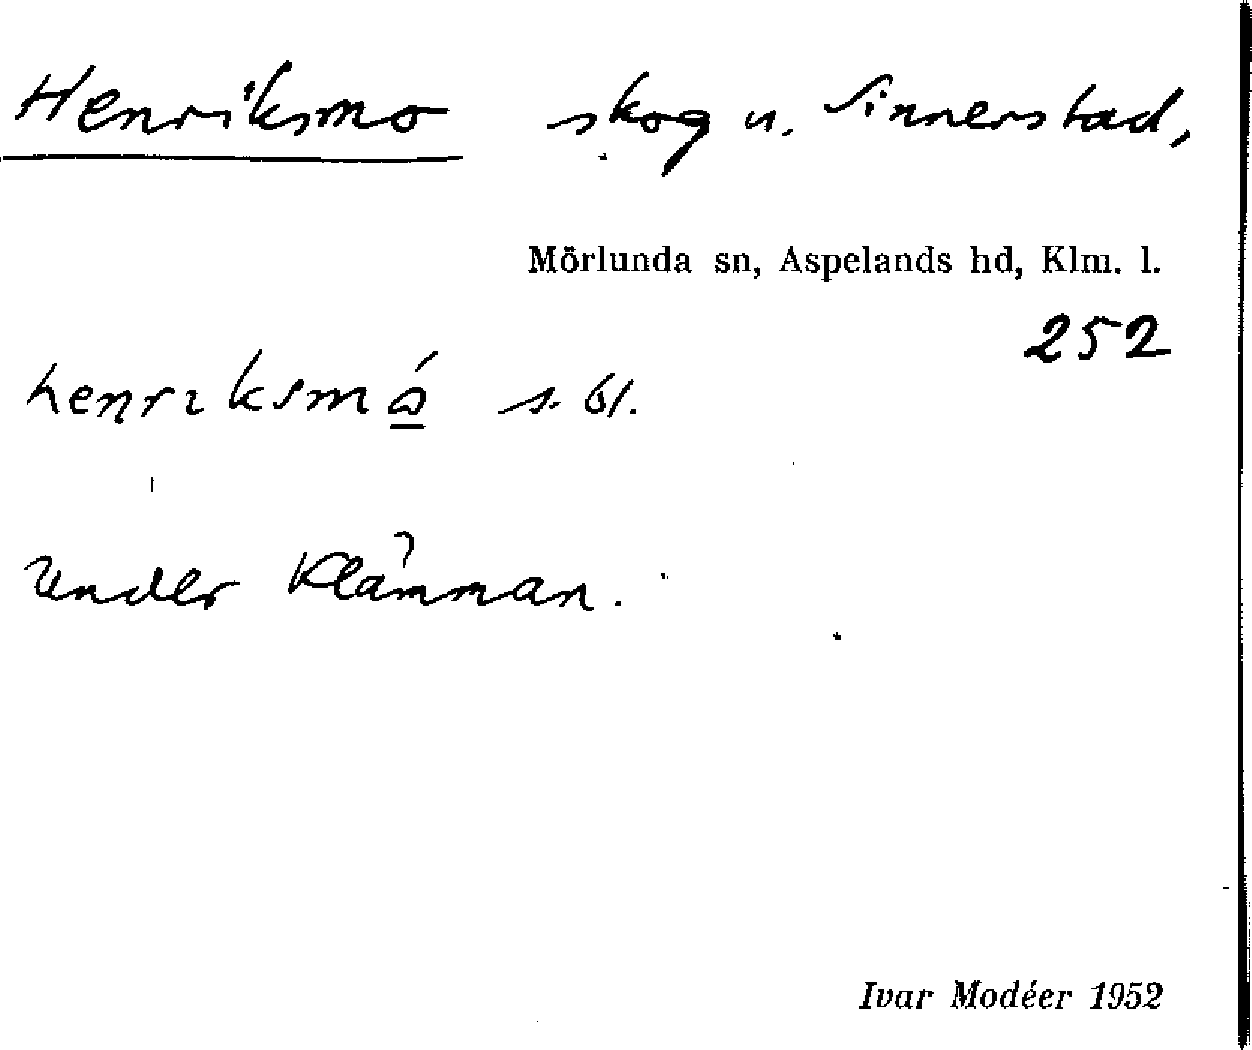 Henriksmo skog u. Sinnerstad,
Mörlunda sn, Aspelands hd, Klm. l.
252
henriksmó s. 61.
Under Klämman.
Ivar Modéer 1952